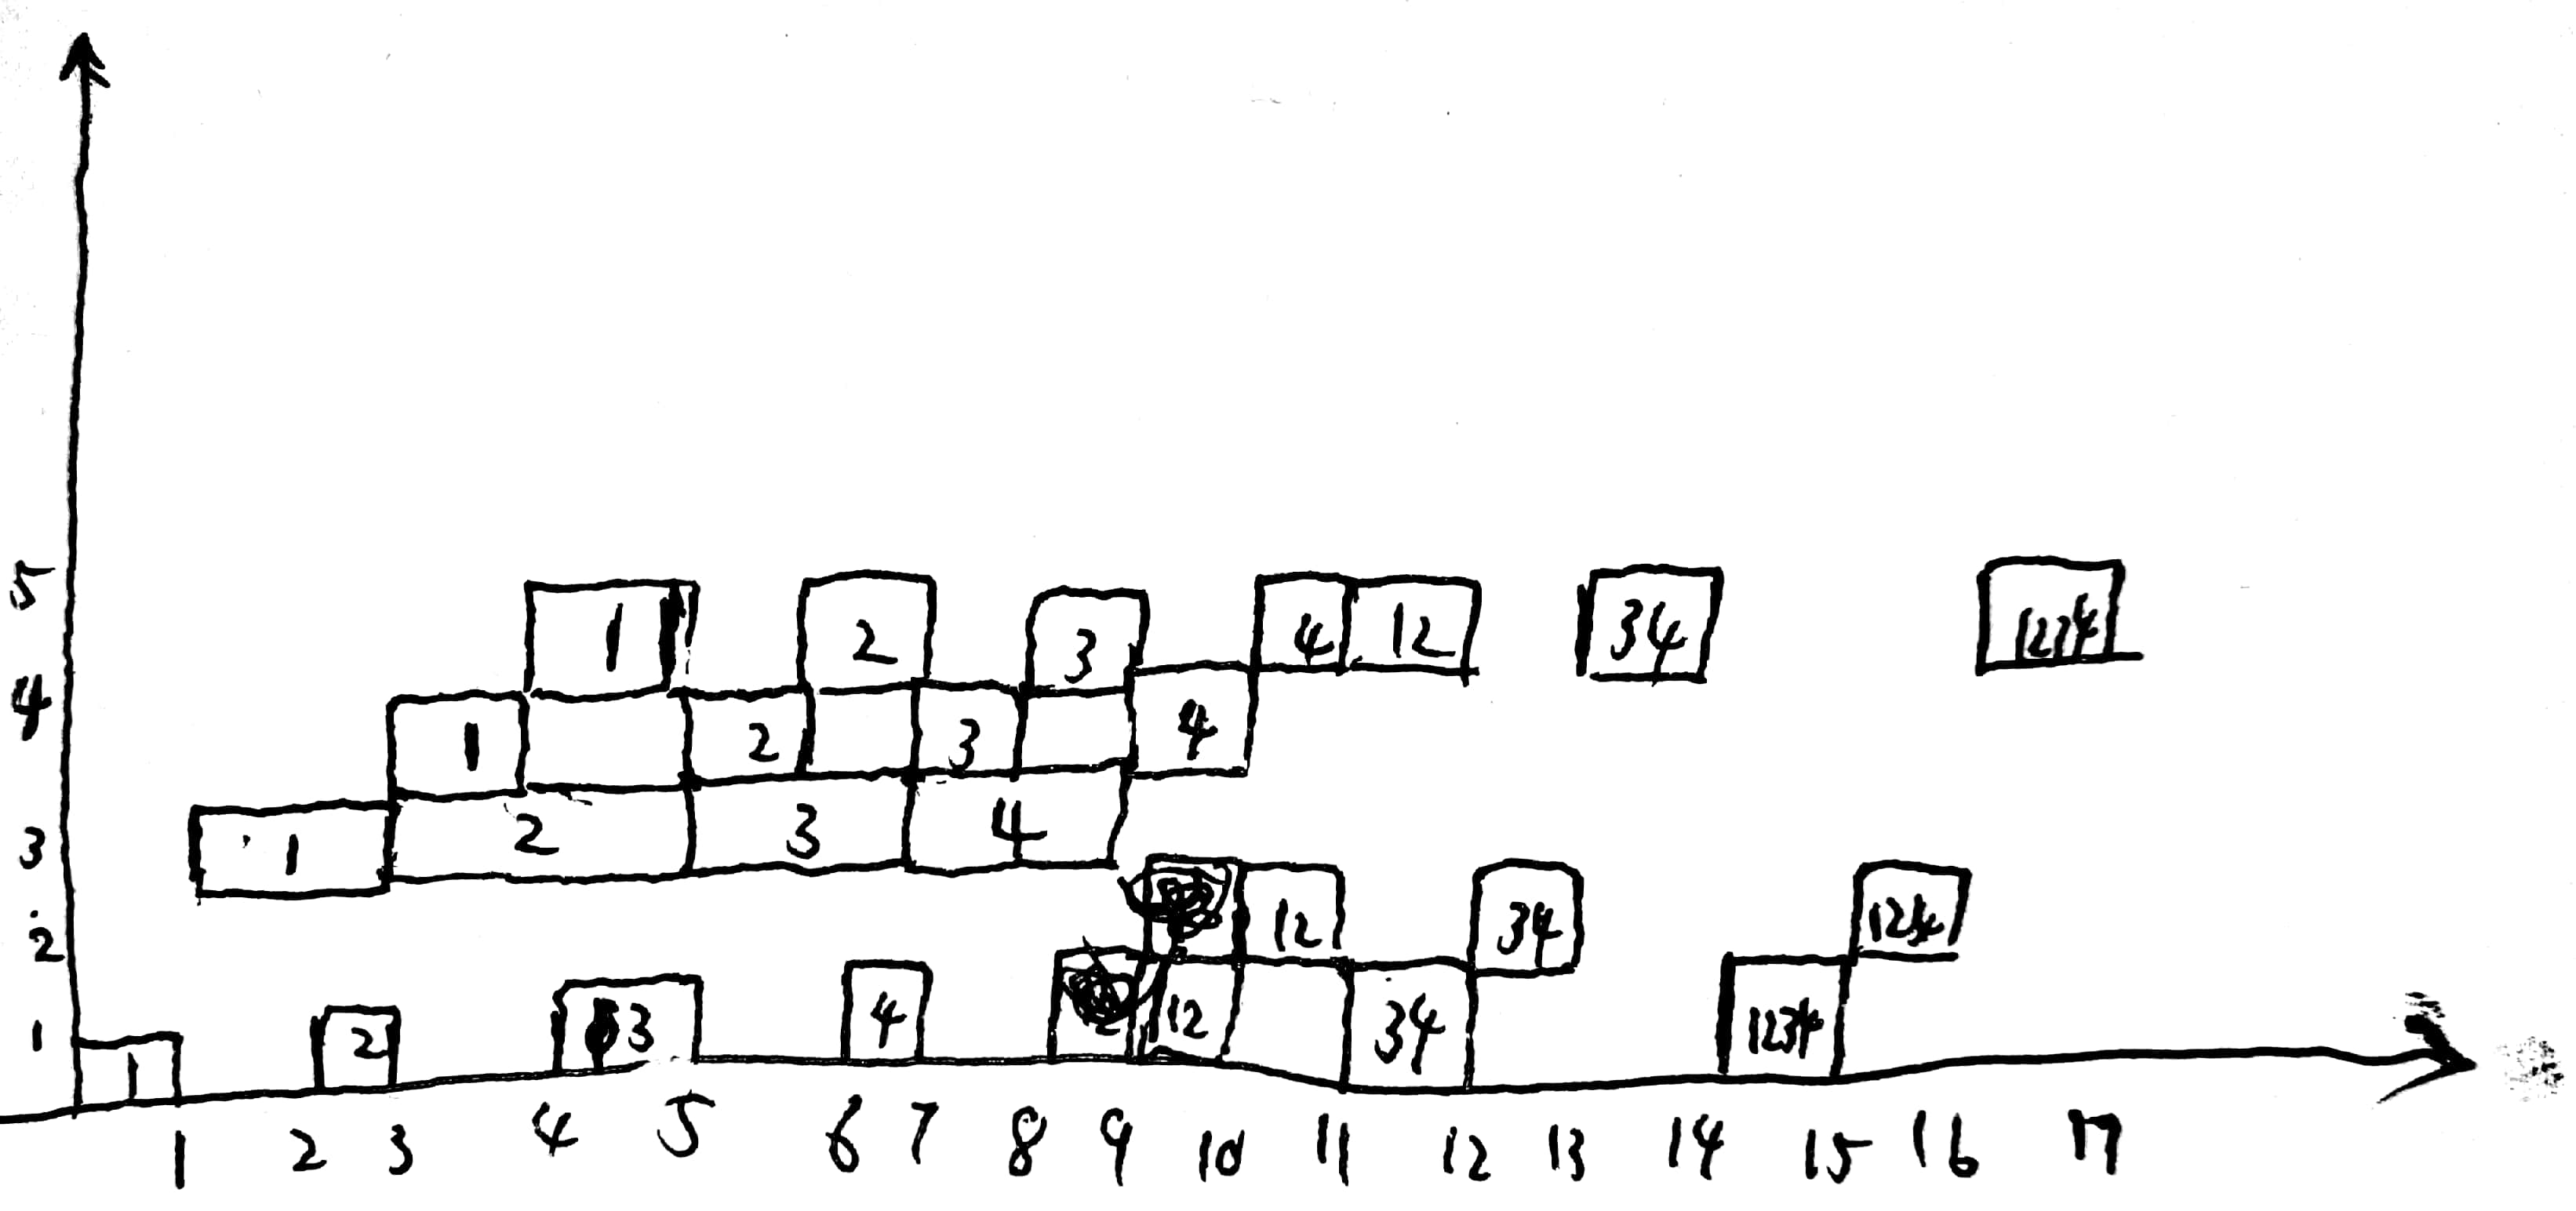 5 1 2 3 4 12 34 1234
4 1 2 3 4
3 1 2 3 4
2 12 34 1234
1 1 2 3 4 12 34 1234
1 2 3 4 5 6 7 8 9 10 11 12 13 14 15 16 17